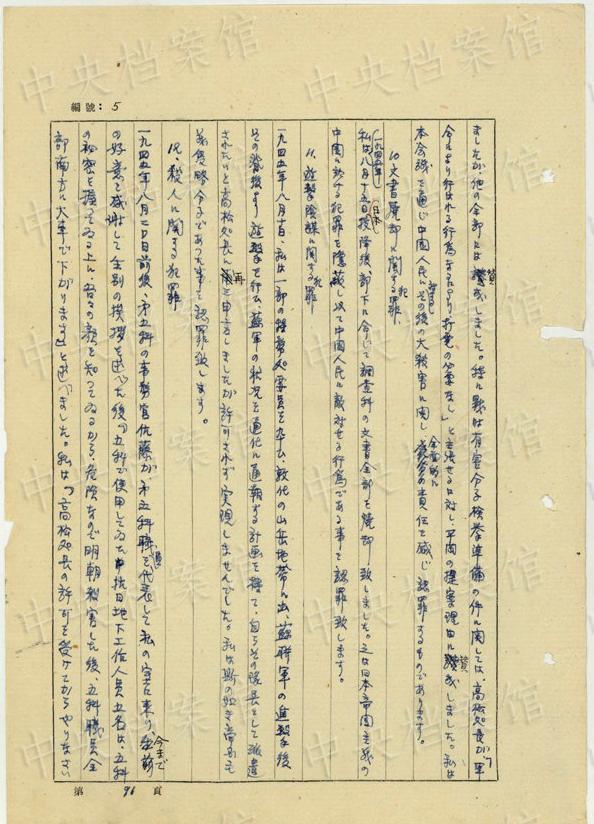 編號：5
ましたが、他の全部には賛成しました。特に戰は有害分子検挙準備の件に関しては、高松処長が「軍
令により行はれる行為なるにより我党の必要なし」と主張せるに対し、平岡の提案理由に賛成しました。私は
本会議を通じ中国人民にその後の大殺害に関し全面的に責任を感じ認罪するものであります。
10、文書焼却に関する犯罪
私は（一九四五年）八月十五日（日本の）投降後、部下に命じて調査科の文書全部を焼却致しました。之は日本帝国主義の
中国に於ける犯罪を隠蔽し以て中国人民に敵対せる行為である事を認罪致します。
11、遊撃陰謀に関する犯罪
一九四五年八月十日、私は一部の特務処要員を率ひ、敦化の山岳地帯に出、蘇聯軍の進撃後
その背後より遊撃を行ひ、蘇軍の状況を通化に通報する計画を樹て、自らその隊長として派遣
されたいと高松処長に再三申言しましたが許可されず実現しませんでした。私は斯の如き帝国主
義侵略分子であった事を認罪致します。
12、殺人に関する犯罪
一九四五年八月二日前後、第五科の事務官佐藤が第五科職員を代表して私の室に来り、今まで
の好意を感謝して告別の挨拶を述べた後「五科で使用してゐた中抗日地下工作人員五名は、五科
の秘密を握ってゐる上に、吾々の顔を知ってゐるから、危険なので明朝殺害した後、五科職員全
部南方に汽車で下がります」と述べました。私は「高松処長の許可を受けてからやりなさい
第 96 頁
中央档案馆